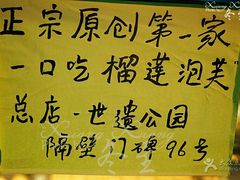 正宗原创第一家
一口吃榴莲泡芙
总店·世遗公园
隔壁门碑96号